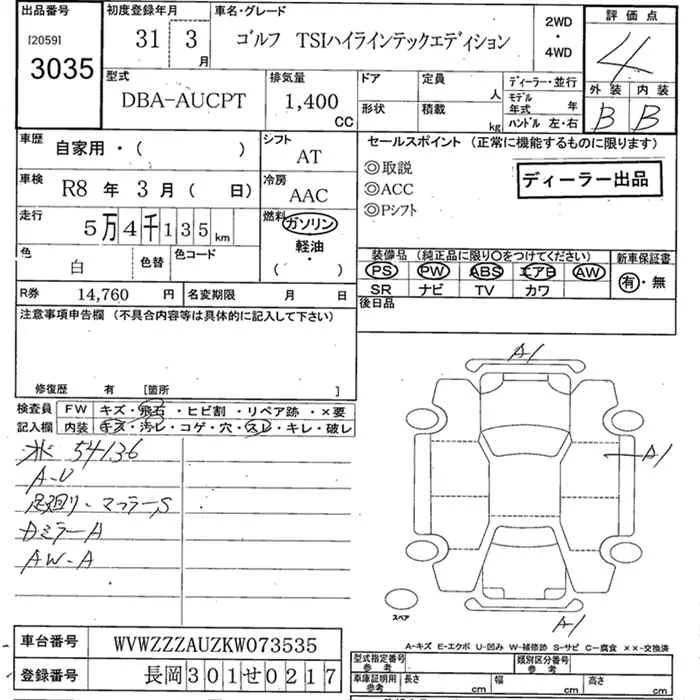 出品番号
[2059]
3035
初度登録年月
31 3月
車名・グレード
ゴルフ TSIハイラインテックエディション
2WD
・
4WD
評価点
4
外装 内装
B B
型式
DBA-AUCPT
排気量
1,400
CC
ドア
定員
人
形状
積載
kg
ディーラー・並行
モデル年式 年
ハンドル 左・右
車歴
自家用・( )
シフト
AT
車検
R8 年 3 月 ( 日)
冷房
AAC
走行
5万4千135km
燃料
ガソリン
軽油
・
( )
色
白
色替
色コード
R券 14,760 円
名変期限 月 日
セールスポイント (正常に機能するものに限ります)
◎取説
◎ACC
◎Pシフト
ディーラー出品
装備品 (純正品に限り〇をつけてください)
PS PW ABS エアB AW
SR ナビ TV カワ
新車保証書
有・無
後日品
注意事項申告欄 (不具合内容等は具体的に記入して下さい)
修復歴 有 [箇所 ]
検査員記入欄
FW キズ・飛石・ヒビ割・リペア跡・×要
内装 キズ・汚レ・コゲ・穴・スレ・キレ・破レ
54136
A-U
足廻り-マフラーS
Dミラー A
AW-A
A1
A1
A1
スペア
A-キズ E-エクボ U-凹み W-補修跡 S-サビ C-腐食 ××-交換済
車台番号 WVWZZZAUZKW073535
登録番号 長岡301せ0217
型式指定番号
参考
類別区分番号
車庫証明用
参考
長さ cm 幅 cm 高さ cm